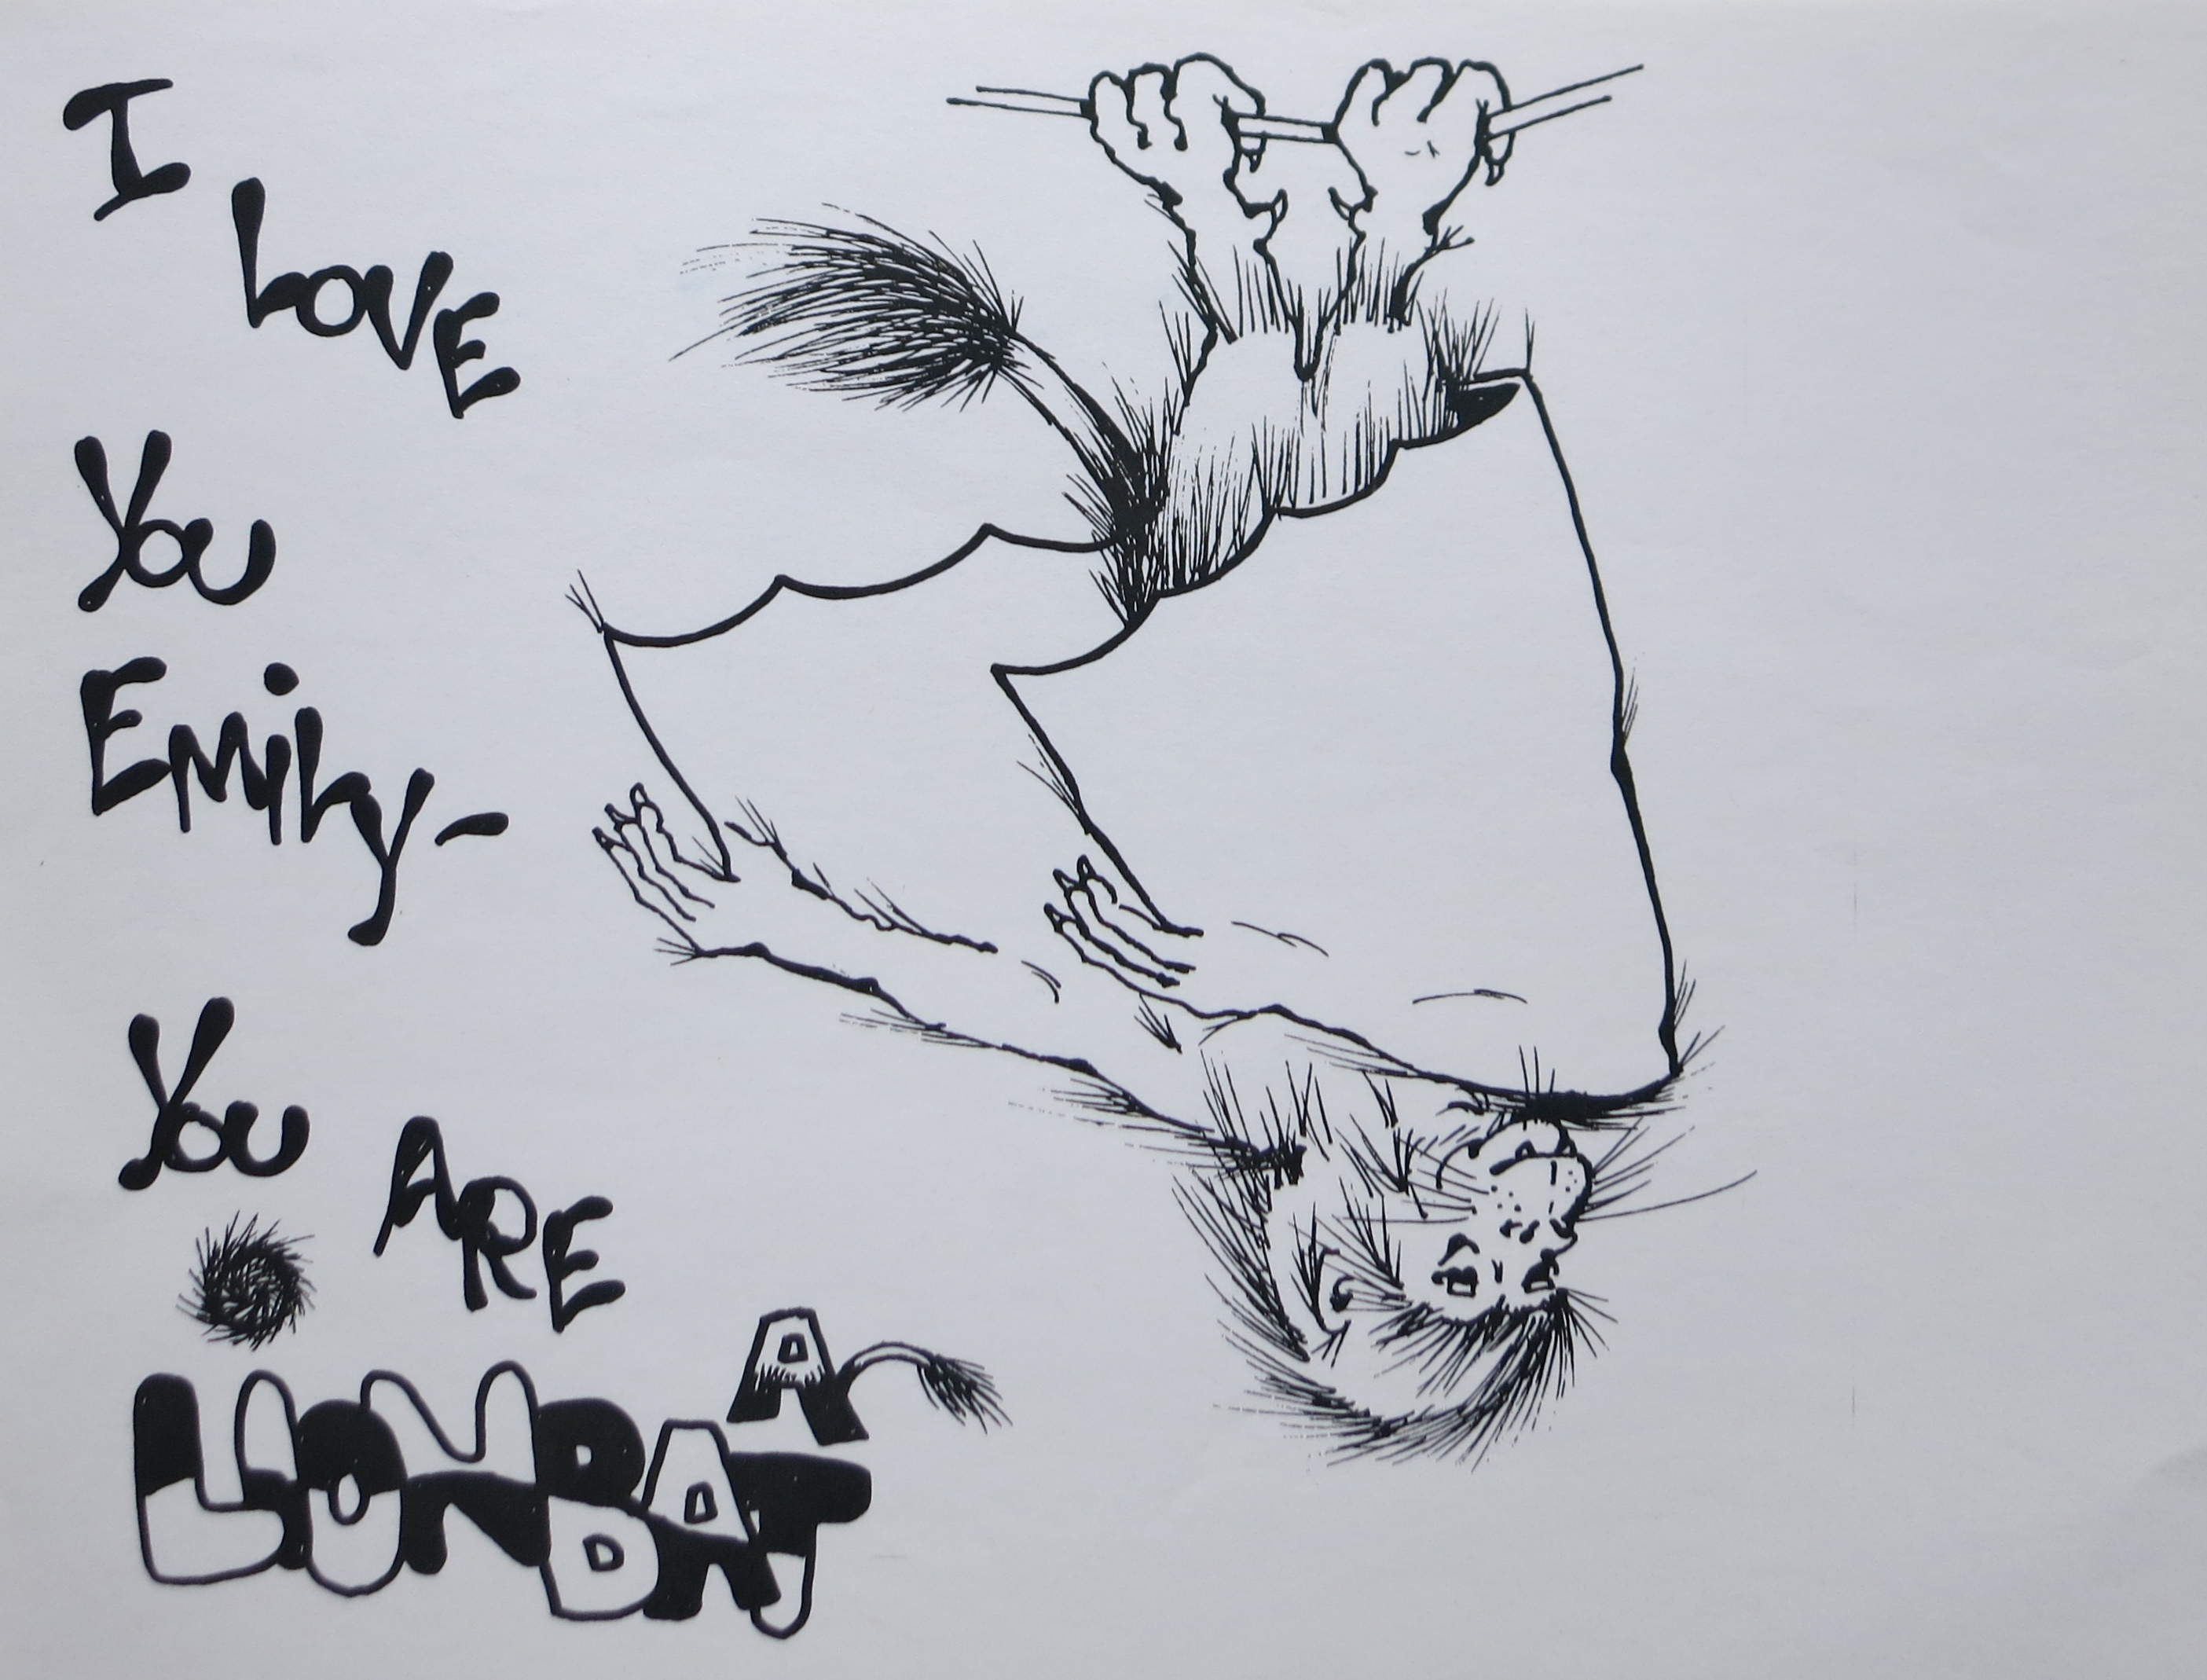 I LOVE
You
Emily-
You ARE A
LiONBAT